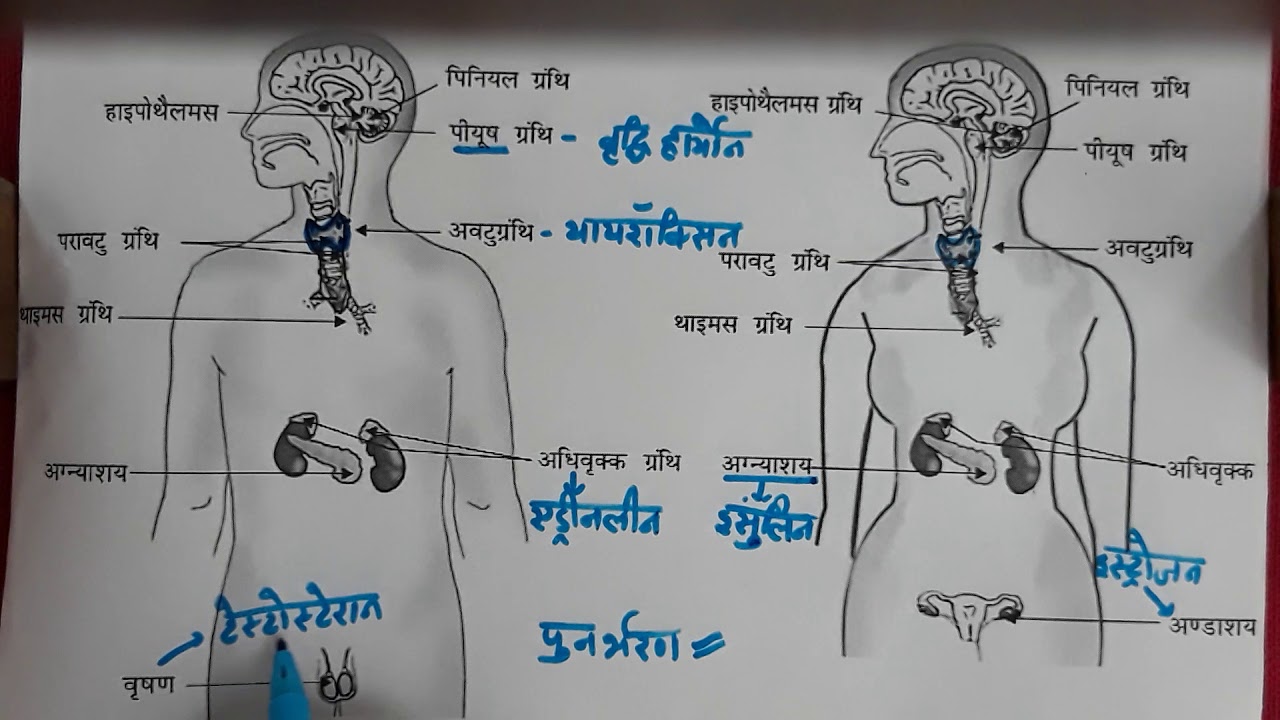 पिनियल ग्रंथि
हाइपोथैलमस
पीयूष ग्रंथि - वृद्धि हार्मोन
परावटु ग्रंथि
अवटुग्रंथि - थायरॉक्सिन
थाइमस ग्रंथि
अग्न्याशय
अधिवृक्क ग्रंथि
एड्रीनलीन
टेस्टोस्टेरान
वृषण
पुनर्भरण =
पिनियल ग्रंथि
हाइपोथैलमस ग्रंथि
पीयूष ग्रंथि
अवटुग्रंथि
परावटु ग्रंथि
थाइमस ग्रंथि
अग्न्याशय
इंसुलिन
अधिवृक्क
इस्ट्रोजन
अण्डाशय